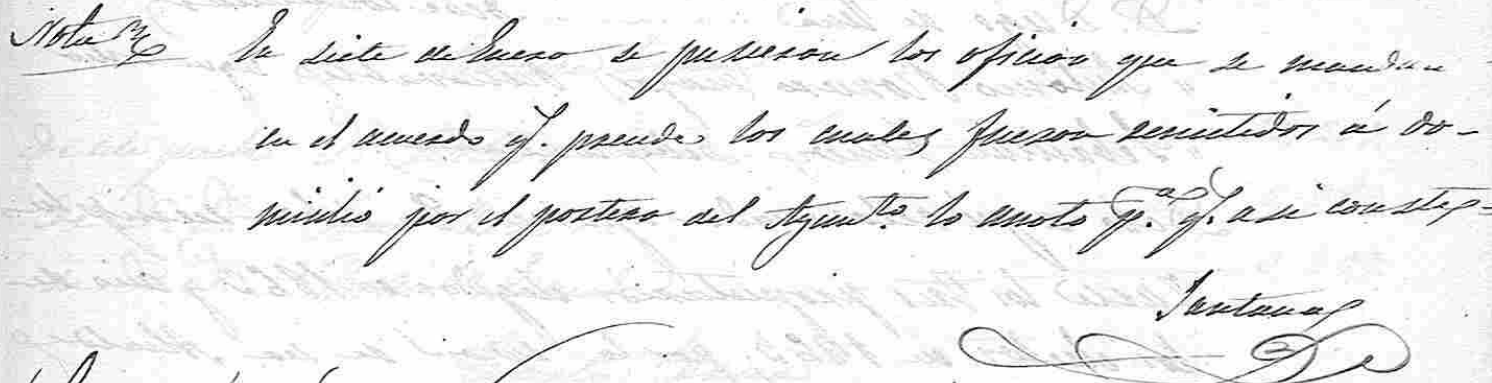 Nota En siete de Enero se pusieron los oficios que se mandan
en el acuerdo q.e precede los cuales fueron remitidos á do-
micilio por el portero del Ayunt.to lo anoto p.a q.e asi conste=
Santana